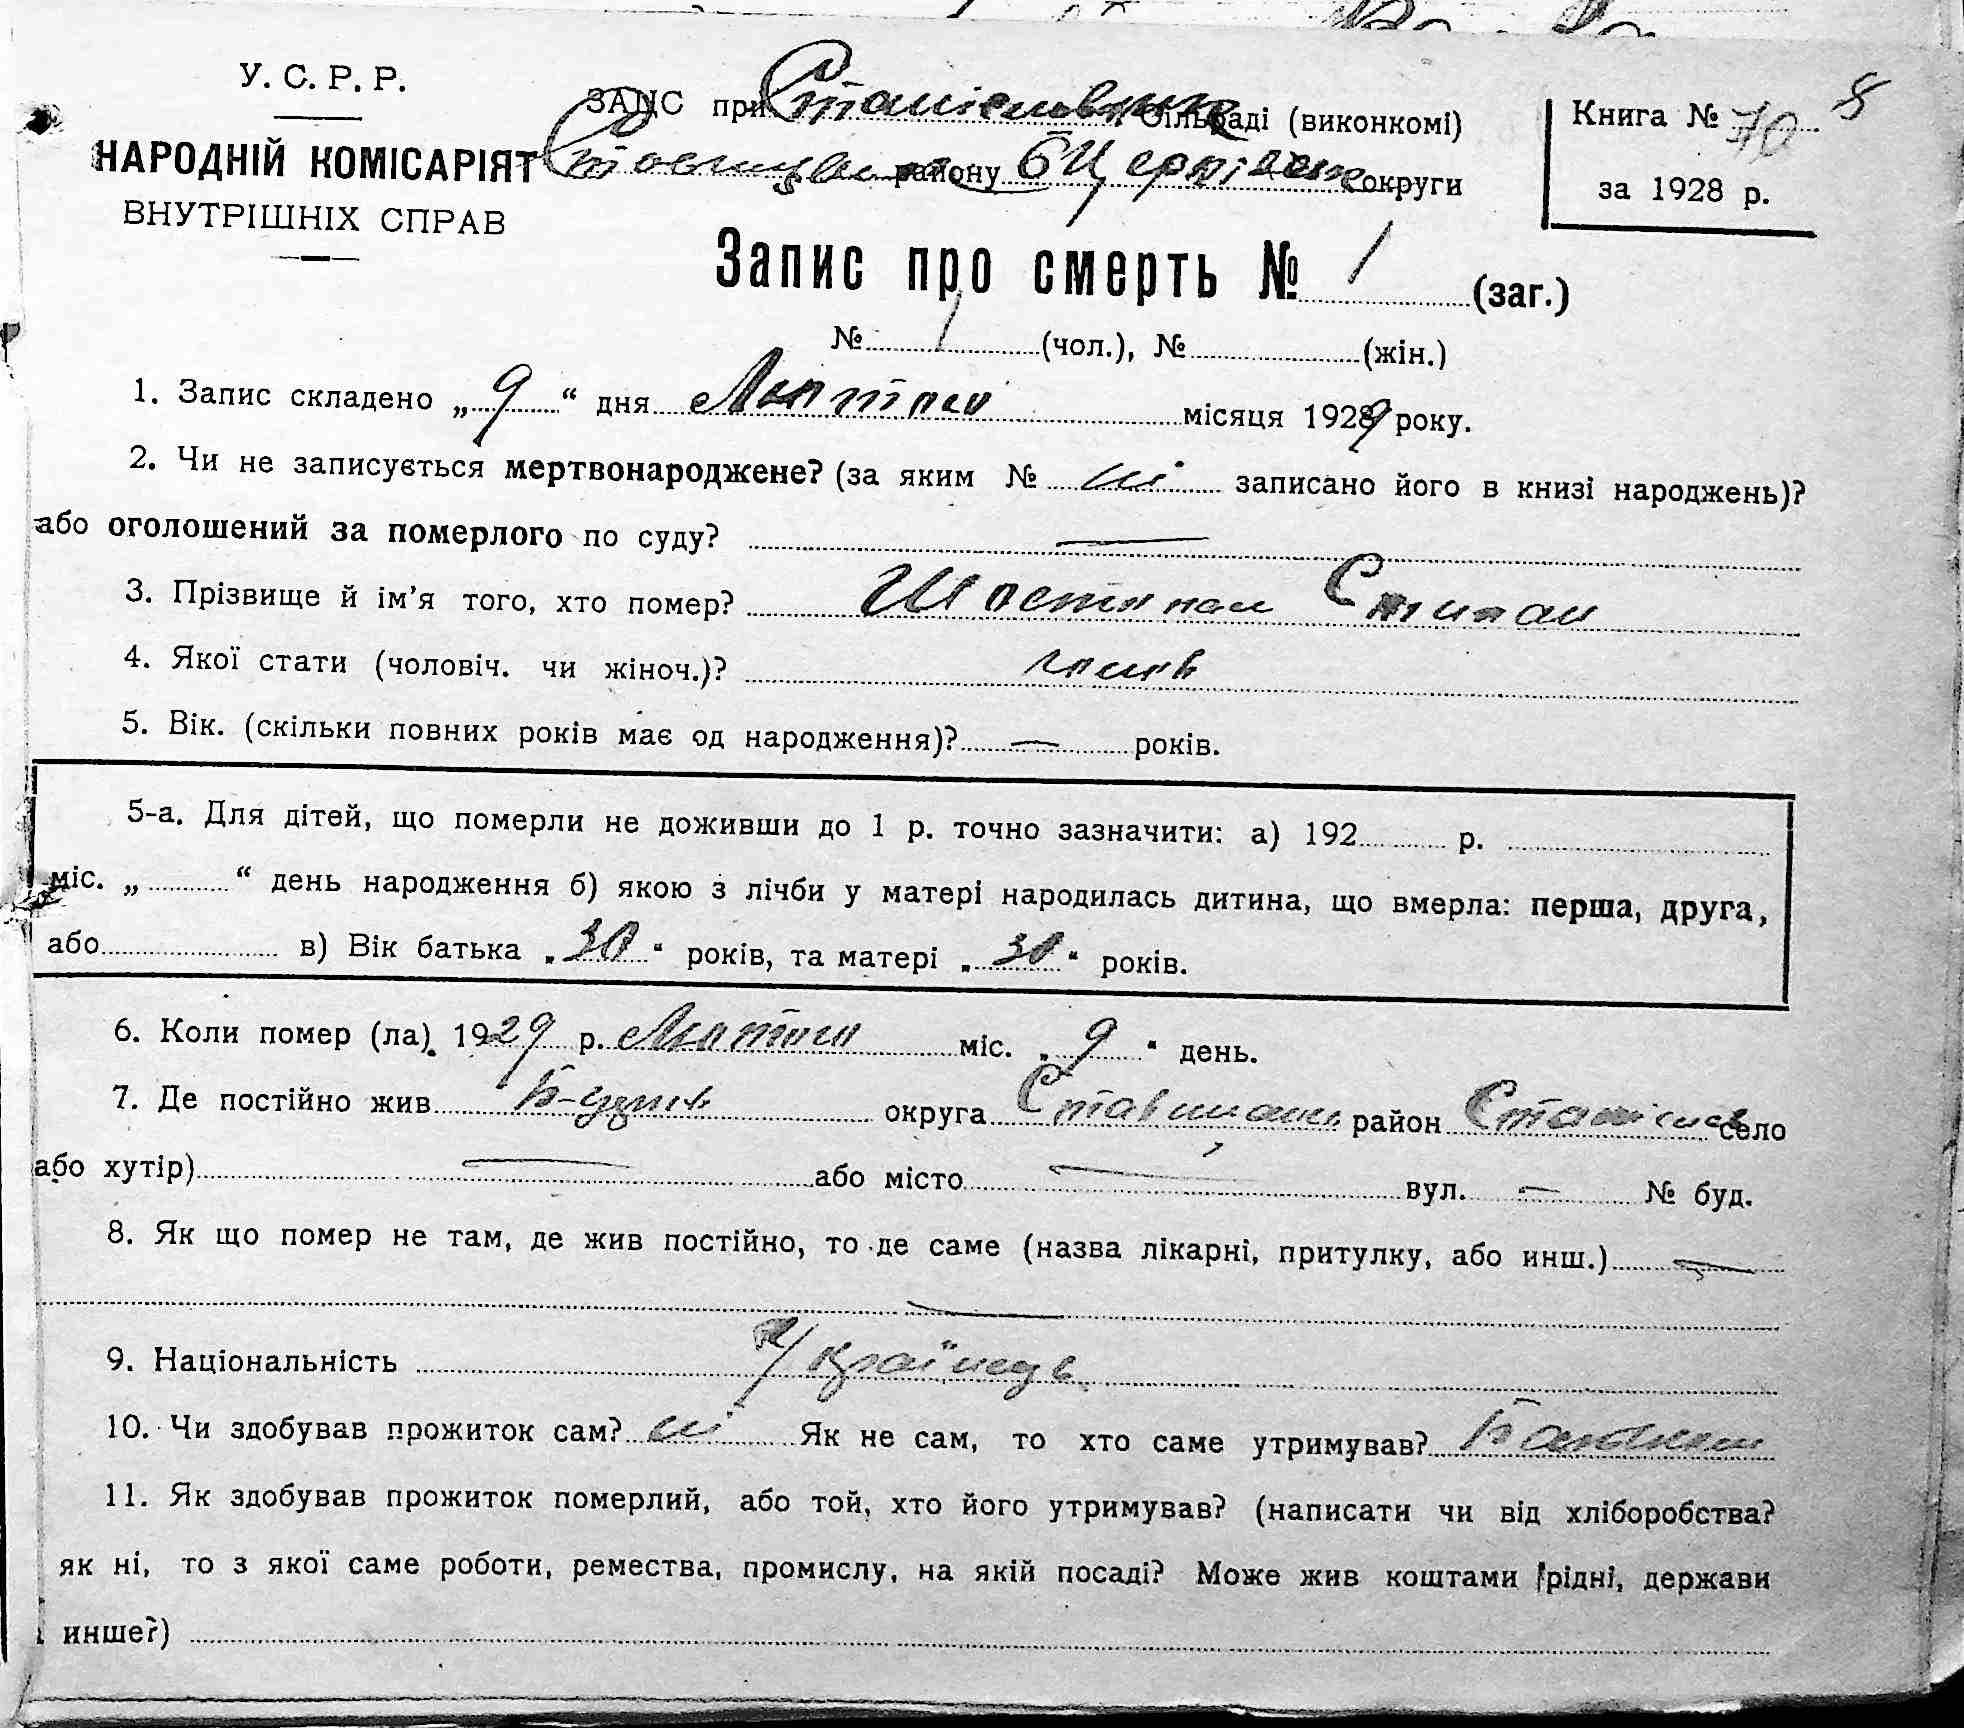 8
У. С. Р. Р.
НАРОДНІЙ КОМІСАРІЯТ
ВНУТРІШНІХ СПРАВ
ЗАПС при сільраді (виконкомі)
району БЦерківськ округи
Книга № 70
за 1928 р.
Запис про смерть № 1 (заг.)
№ 1 (чол.), № (жін.)
1. Запис складено „ 9 “ дня Лютого місяця 1929 року.
2. Чи не записується мертвонароджене? (за яким № ні записано його в книзі народжень)?
або оголошений за померлого по суду? —
3. Прізвище й ім’я того, хто помер? Шостопал Степан
4. Якої стати (чоловіч. чи жіноч.)? чолов
5. Вік. (скільки повних років має од народження)? — років.
5-а. Для дітей, що померли не доживши до 1 р. точно зазначити: а) 192 р.
міс. „ “ день народження б) якою з лічби у матері народилась дитина, що вмерла: перша, друга,
або в) Вік батька „ 30 “ років, та матері „ 30 “ років.
6. Коли помер (ла) 1929 р. Лютого міс. „ 9 “ день.
7. Де постійно жив округа Ставищанськ район Станіслав село
або хутір) — або місто — вул. — № буд.
8. Як що помер не там, де жив постійно, то де саме (назва лікарні, притулку, або инш.) —
—
9. Національність Українець
10. Чи здобував прожиток сам? ні Як не сам, то хто саме утримував? Батьки
11. Як здобував прожиток померлий, або той, хто його утримував? (написати чи від хліборобства?
як ні, то з якої саме роботи, ремества, промислу, на якій посаді? Може жив коштами рідні, держави
инше?)